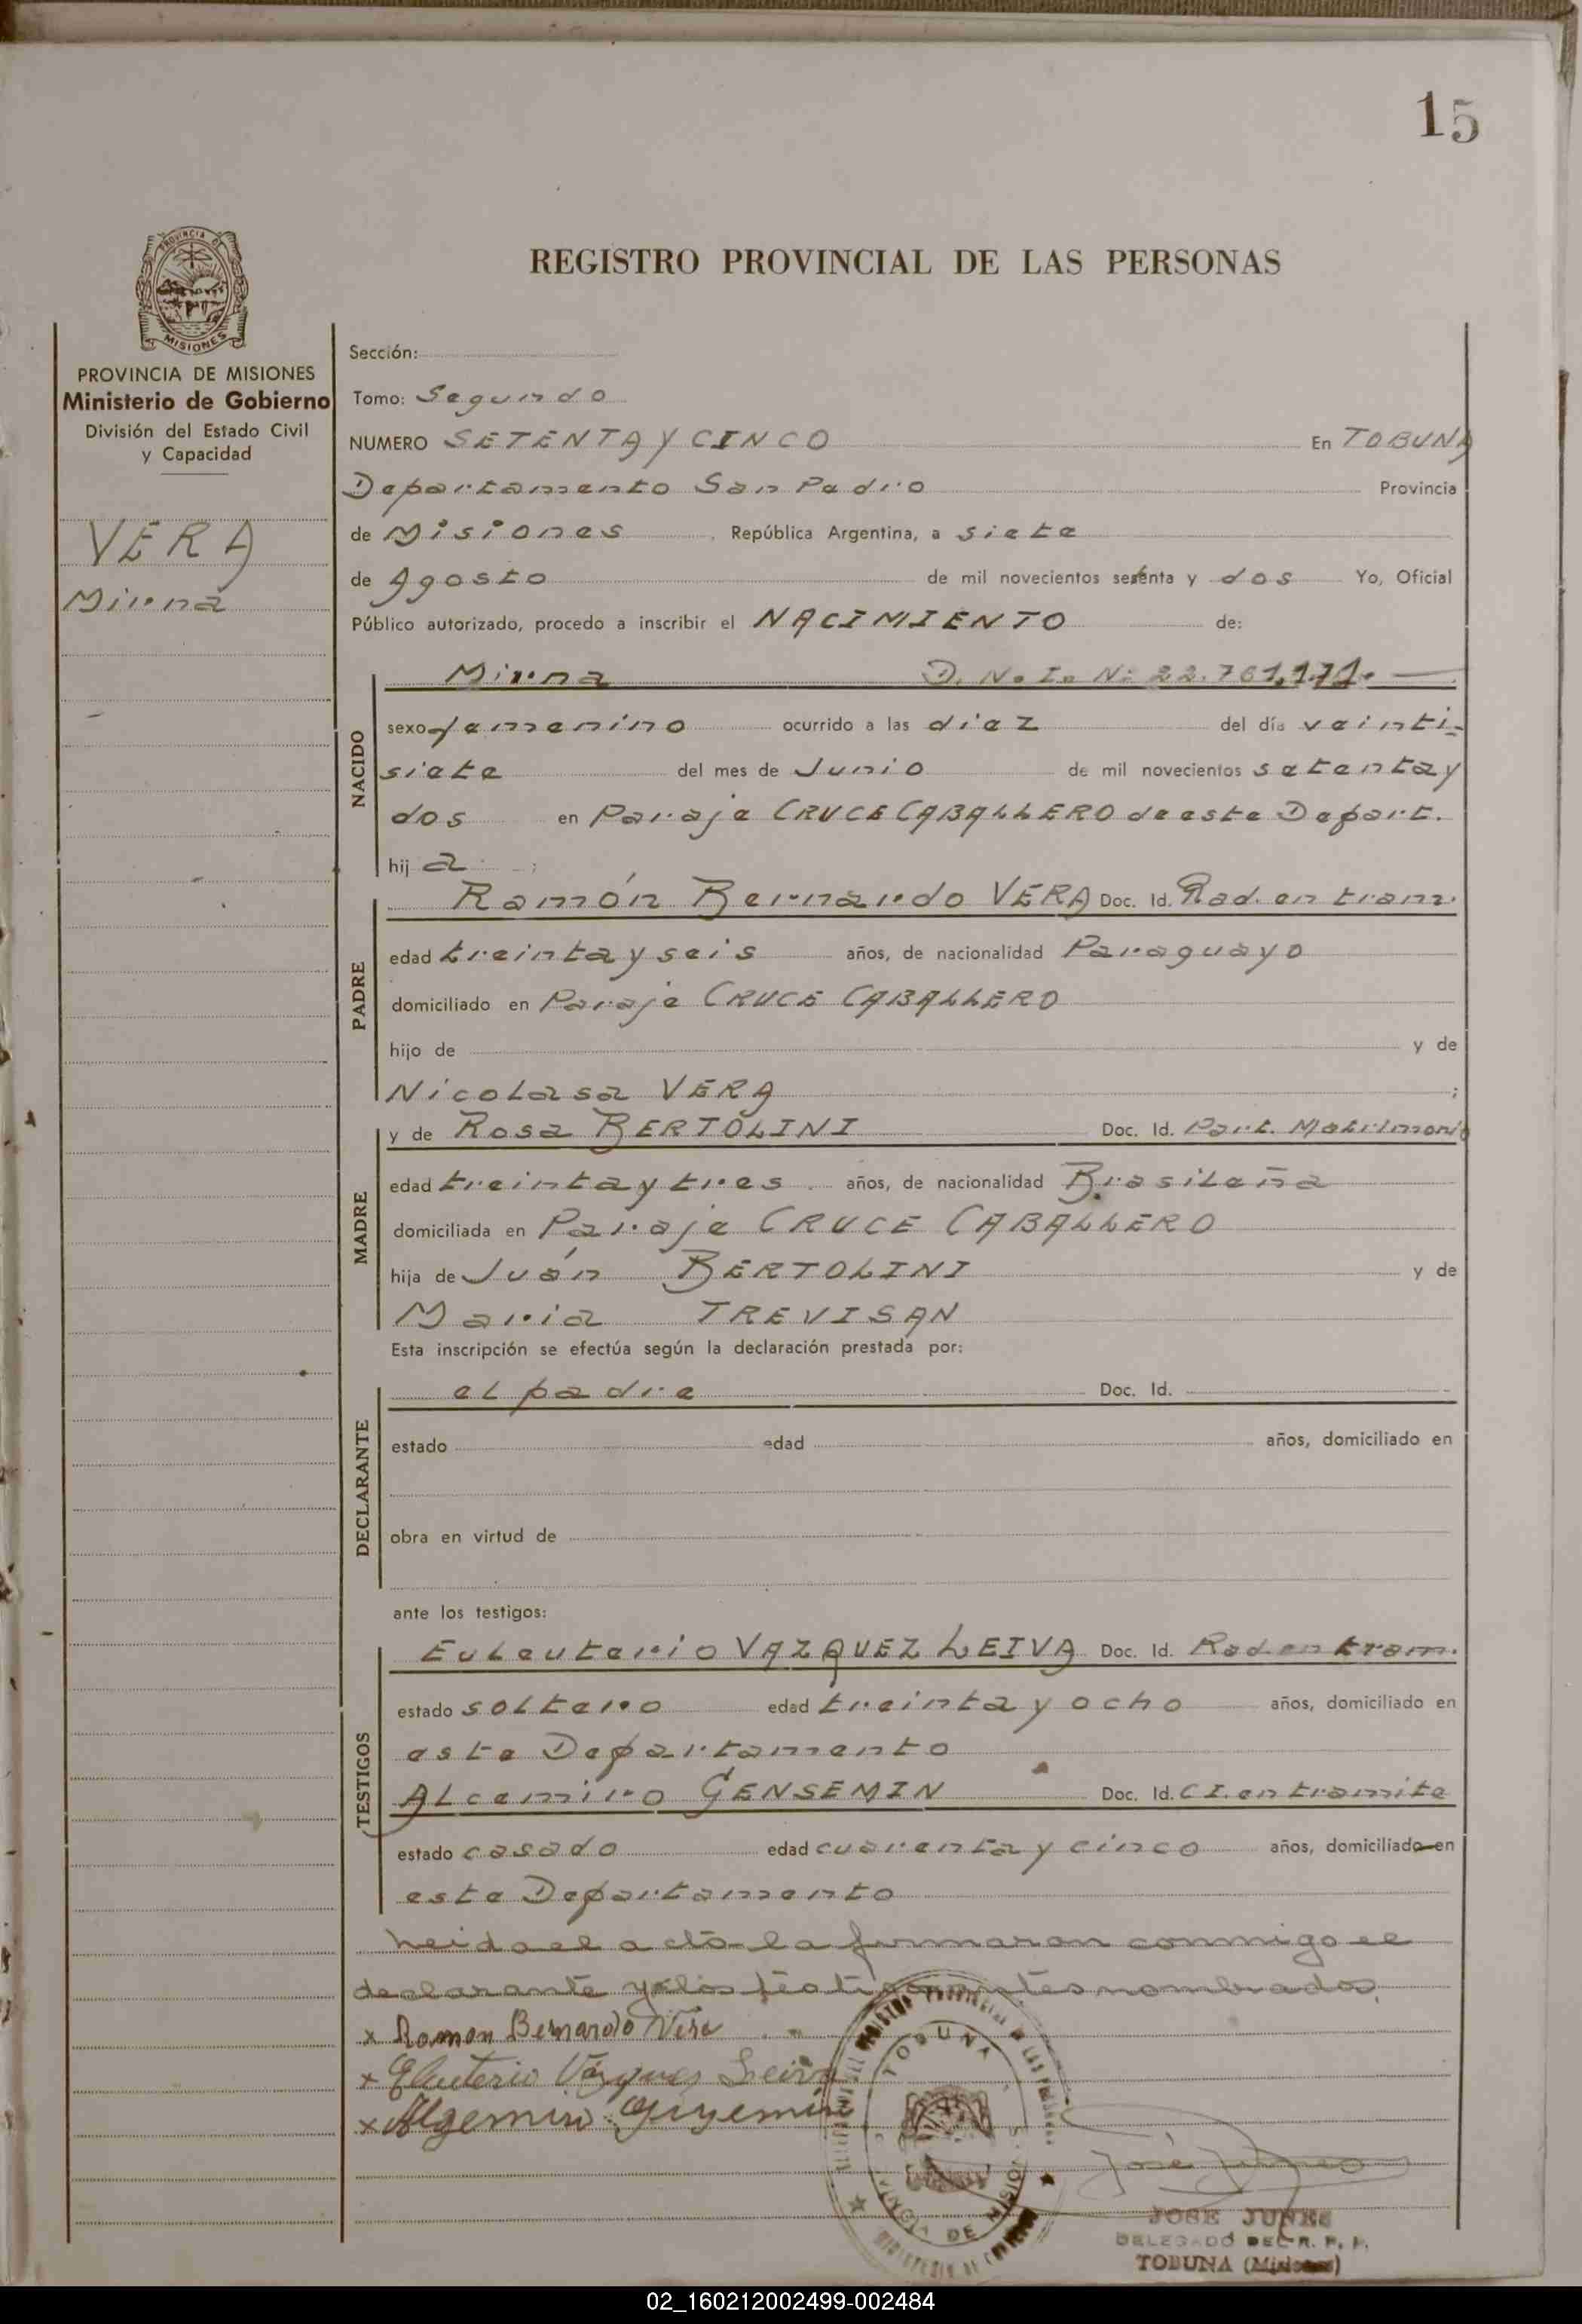 15
REGISTRO PROVINCIAL DE LAS PERSONAS
PROVINCIA DE MISIONES
PROVINCIA DE MISIONES
Ministerio de Gobierno
División del Estado Civil
y Capacidad
VERA
Mirna
Sección:
Tomo: Segundo
NUMERO SETENTA Y CINCO En TOBUNA
Departamento San Pedro Provincia
de Misiones, República Argentina, a siete
de Agosto de mil novecientos setenta y dos Yo, Oficial
Público autorizado, procedo a inscribir el NACIMIENTO de:
NACIDO
Mirna D. N. I. Nº 22.761.171.
sexo femenino ocurrido a las diez del día veinti-
siete del mes de Junio de mil novecientos setenta y
dos en Paraje CRUCE CABALLERO de este Depart.
hij a ;
PADRE
Ramón Bernardo VERA Doc. Id. Rad. en tram.
edad treinta y seis años, de nacionalidad Paraguayo
domiciliado en Paraje CRUCE CABALLERO
hijo de y de
Nicolasa VERA ;
MADRE
y de Rosa BERTOLINI Doc. Id. Part. Matrimonio
edad treinta y tres años, de nacionalidad Brasileña
domiciliada en Paraje CRUCE CABALLERO
hija de Juán BERTOLINI y de
Maria TREVISAN
Esta inscripción se efectúa según la declaración prestada por:
DECLARANTE
el padre Doc. Id.
estado edad años, domiciliado en
obra en virtud de
ante los testigos:
TESTIGOS
Euleuterio VAZQUEZ LEIVA Doc. Id. Rad. en tram.
estado soltero edad treinta y ocho años, domiciliado en
este Departamento
Alcemiro GENSEMIN Doc. Id. C I. en tramite
estado casado edad cuarenta y cinco años, domiciliado en
este Departamento
Leida el acta la firmaron conmigo el
declarante y los testigos antes nombrados.
x Ramon Bernardo Vera
x Eleuterio Vázquez Leiva
x Algemiro
TOBUNA
JOSE JUNES
DELEGADO DEL R. P. P.
TOBUNA (Misiones)
02_160212002499-002484